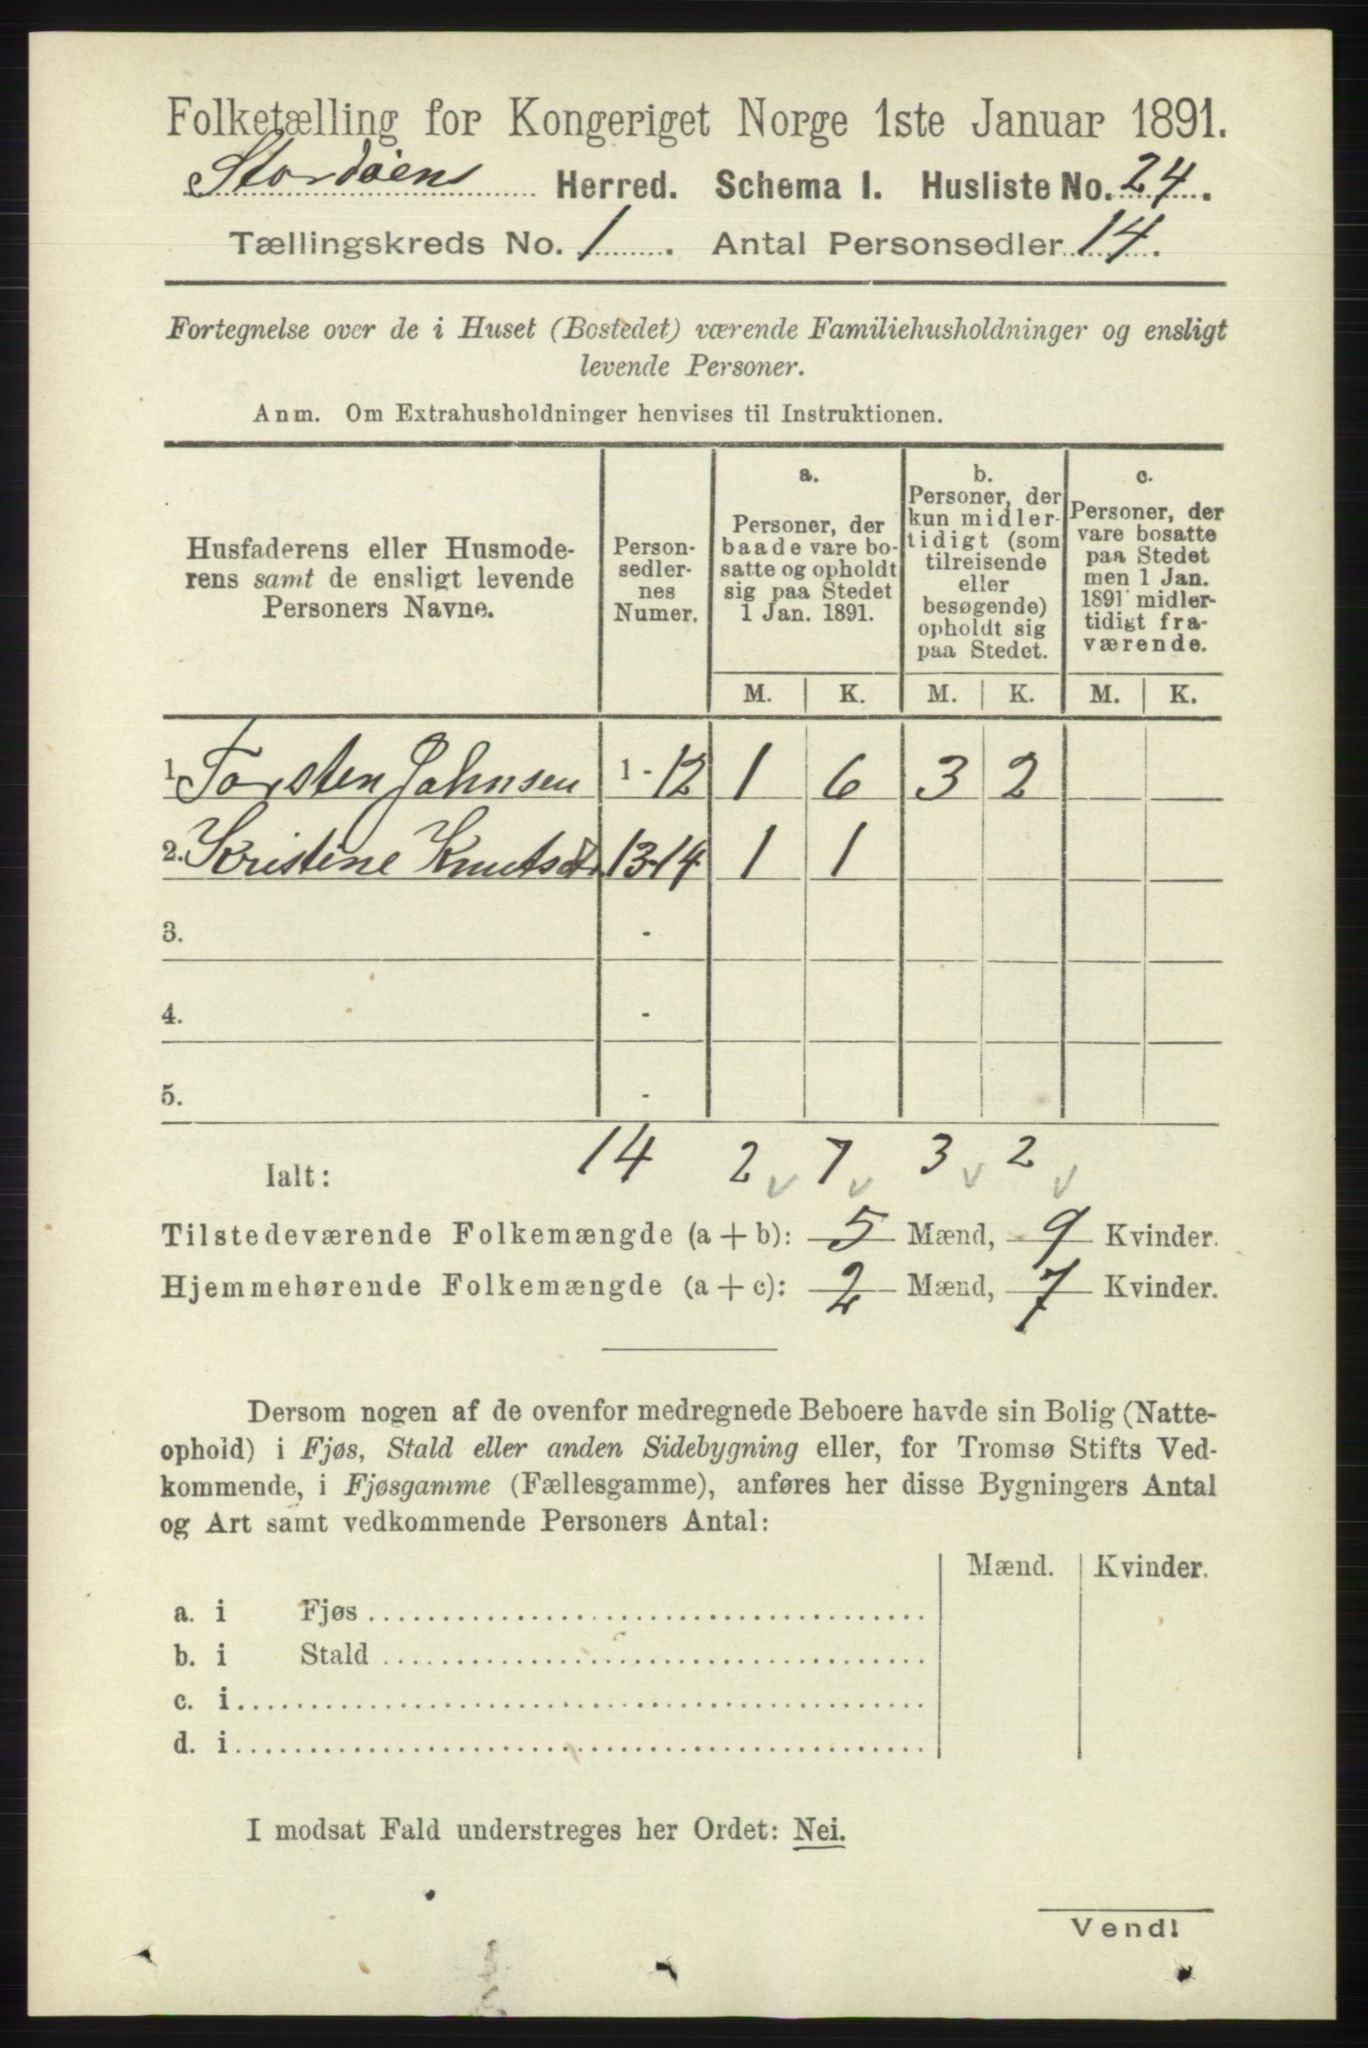 Folketælling for Kongeriget Norge 1ste Januar 1891.
Stordöens Herred. Schema I. Husliste No. 24.
Tællingskreds No. 1. Antal Personsedler 14.
Fortegnelse over de i Huset (Bostedet) værende Familiehusholdninger og ensligt
levende Personer.
Anm. Om Extrahusholdninger henvises til Instruktionen.
Husfaderens eller Husmode-
rens samt de ensligt levende
Personers Navne.
Person-
sedler-
nes
Numer.
a.
Personer, der
baade vare bo-
satte og opholdt
sig paa Stedet
1 Jan. 1891.
b.
Personer, der
kun midler-
tidigt (som
tilreisende
eller
besøgende)
opholdt sig
paa Stedet.
c.
Personer, der
vare bosatte
paa Stedet
men 1 Jan.
1891 midler-
tidigt fra-
værende.
M. K. M. K. M. K.
1. Torsten Johnsen 1-12 1 6 3 2
2. Kristine Knutsdtr 13-14 1 1
3. -
4. -
5. -
Ialt: 14 2 7 3 2
Tilstedeværende Folkemængde (a + b): 5 Mænd, 9 Kvinder.
Hjemmehørende Folkemængde (a + c): 2 Mænd, 7 Kvinder.
Dersom nogen af de ovenfor medregnede Beboere havde sin Bolig (Natte-
ophold) i Fjøs, Stald eller anden Sidebygning eller, for Tromsø Stifts Ved-
kommende, i Fjøsgamme (Fællesgamme), anføres her disse Bygningers Antal
og Art samt vedkommende Personers Antal:
Mænd. Kvinder.
a. i Fjøs
b. i Stald
c. i
d. i
I modsat Fald understreges her Ordet: Nei.
Vend!